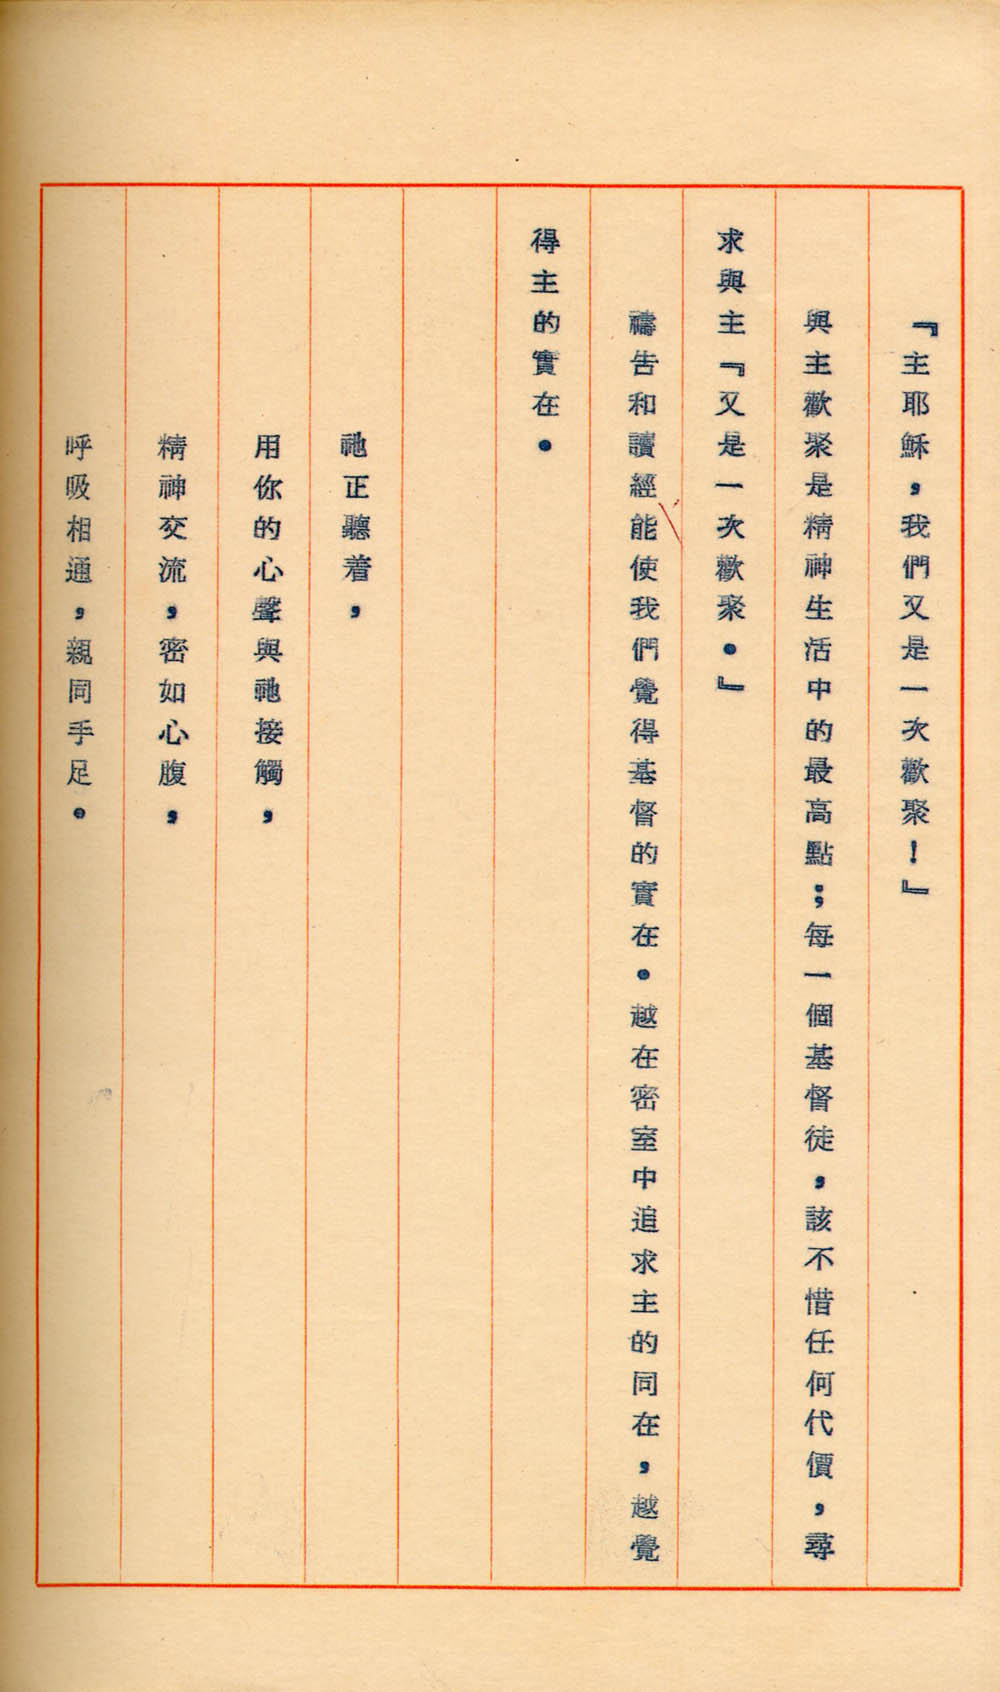 『主耶穌，我們又是一次歡聚！』
與主歡聚是精神生活中的最高點；每一個基督徒，該不惜任何代價，尋
求與主『又是一次歡聚。』
禱告和讀經能使我們覺得基督的實在。越在密室中追求主的同在，越覺
得主的實在。
祂正聽着，
用你的心聲與祂接觸，
精神交流，密如心腹，
呼吸相通，親同手足。